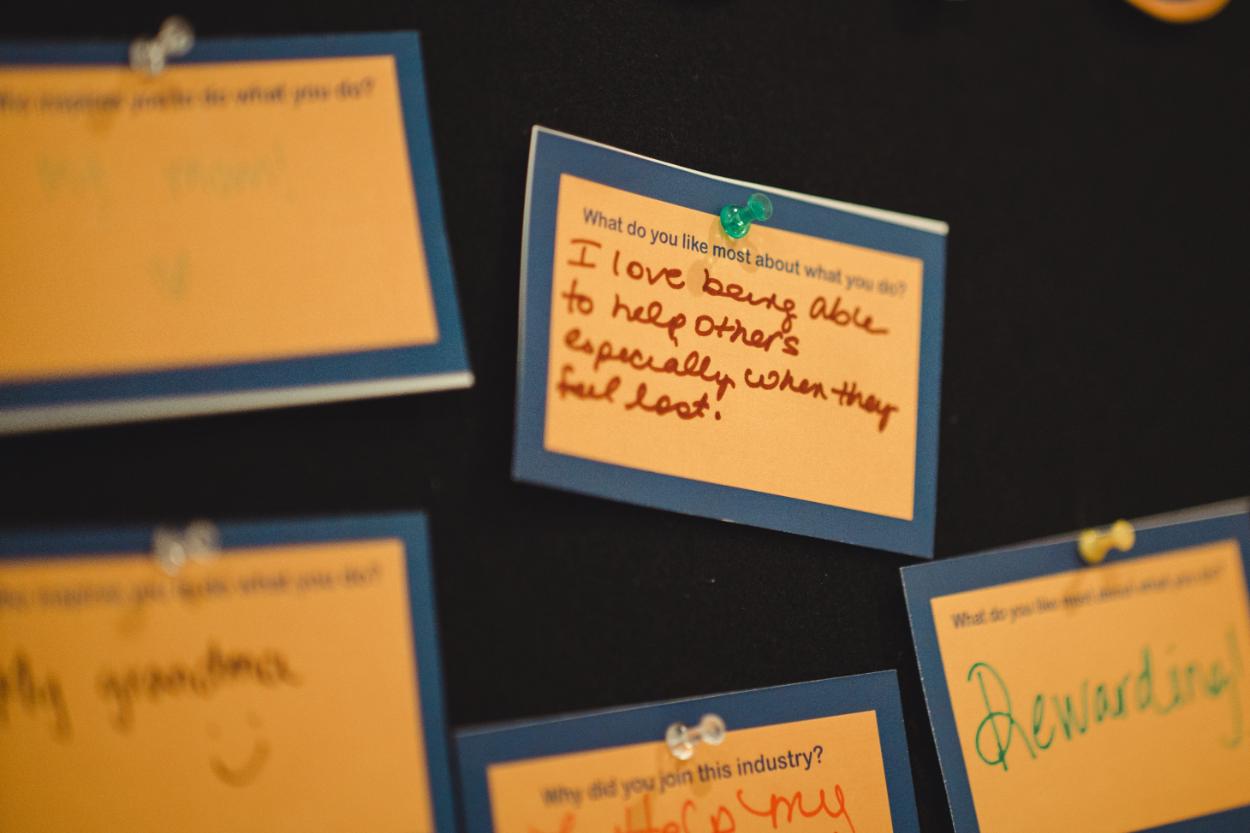 Who inspires you to do what you do?
My mom!
What do you like most about what you do?
I love being able
to help other's
especially when they
feel lost.
Who inspires you to do what you do?
My grandma
Why did you join this industry?
Help my
What do you like most about what you do?
Rewarding!